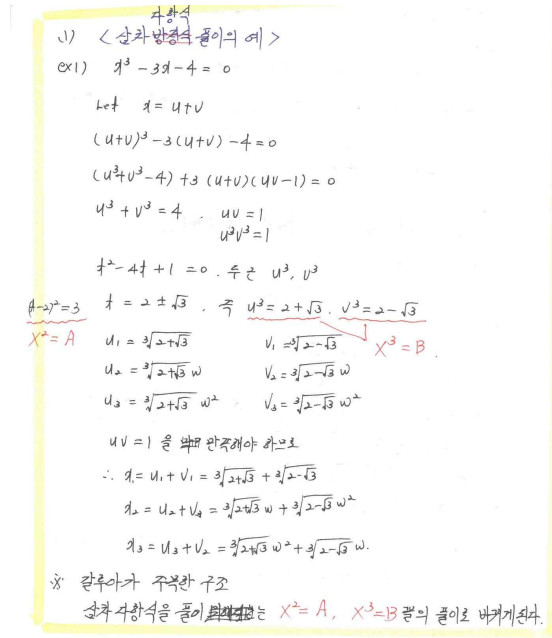 다항식
1) < 삼차 방정식 풀이의 예 >
ex1) x³ - 3x - 4 = 0
Let x = u+v
(u+v)³ - 3(u+v) - 4 = 0
(u³+v³-4) + 3(u+v)(uv-1) = 0
u³ + v³ = 4 . uv = 1
u³v³ = 1
t² - 4t + 1 = 0 . 두근 u³, v³
(t-2)² = 3 t = 2 ± √3 . 즉 u³ = 2+√3 . v³ = 2-√3
X² = A X³ = B .
u₁ = ³√(2+√3) v₁ = ³√(2-√3)
u₂ = ³√(2+√3) w v₂ = ³√(2-√3) w
u₃ = ³√(2+√3) w² v₃ = ³√(2-√3) w²
uv = 1 을 만족해야 하므로
∴ x₁ = u₁ + v₁ = ³√(2+√3) + ³√(2-√3)
x₂ = u₂ + v₃ = ³√(2+√3) w + ³√(2-√3) w²
x₃ = u₃ + v₂ = ³√(2+√3) w² + ³√(2-√3) w.
※ 갈루아가 주목한 구조
삼차 다항식을 풀이 는 X² = A, X³ = B 꼴의 풀이로 바뀌게된다.